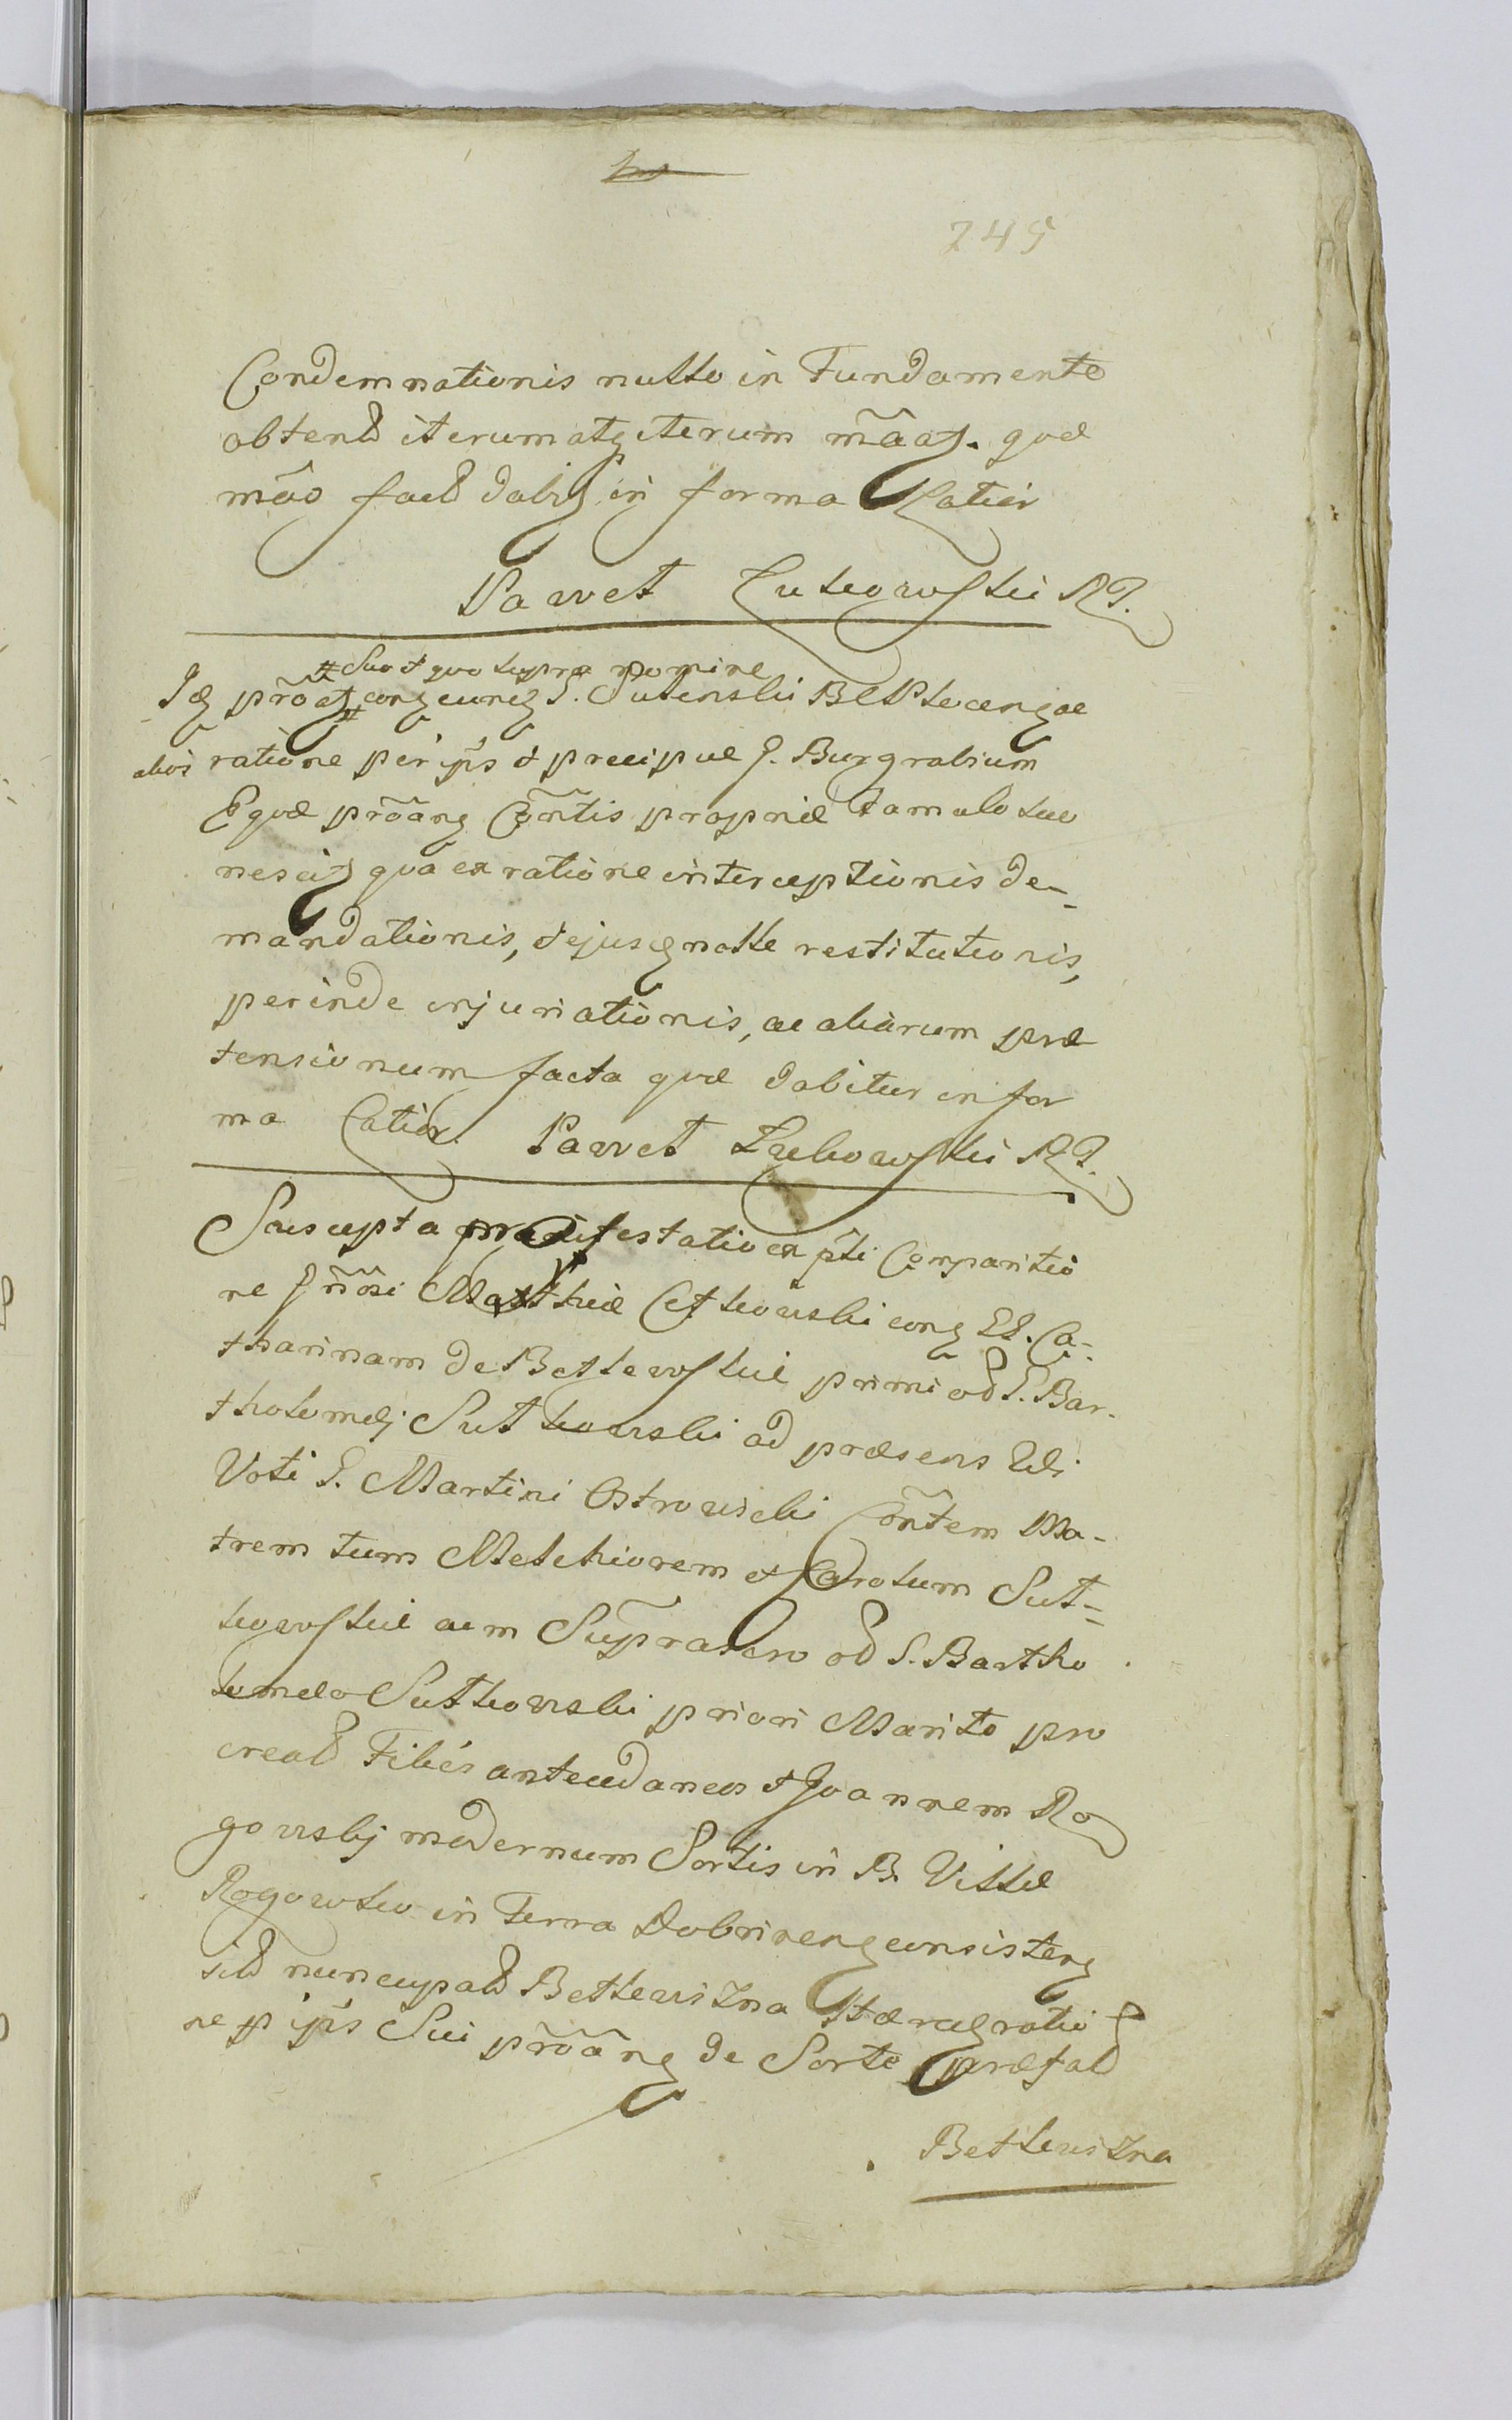 245
Condemnationis nullo in Fundamento
obtent iterum atq iterum mãat. quæ
mão fact dabit in forma Latiori
Paweł Lukowski RP.
# Suo et quo supra nomine
Id prõat cong eunq G. Sutenski B Plocengae
alios ratione per ips et precipue G. Burgrabium
Equæ prõang Cõntis propriæ famulo suo
nescit qua ex ratione interceptionis de-
mandationis, et ejusq nolle restitutionis,
perinde injuriationis, ac aliarum præ
tensionum facta quæ dabitur in for
ma Latior. Paweł Lukowski RP.
Suscepta manifestatio ex pti Comparitio
ne Gñõsi Matthiæ Cethowski cong GG. Ca-
tharinam de Betlewskie primi od G. Bar-
tholomej Sutkowski ad præsens 2di
Voti G. Martini Ostrowski Cõntem Ma-
trem tum Melchiorem et Carolum Sut-
kowskie cum Suprascrō od G. Bartho
lomeo Sutkowski priori Marito pro
creat Filios antecedaneos et Joannem Ro
gowskj modernum Sortis in B. Villæ
Rogowko in Terra Dobrineng consisteng
sit nuncupat Betlewizna Hæreq ratio
ne p ips Sui prõãng de Sorte præfat
Betlewizna